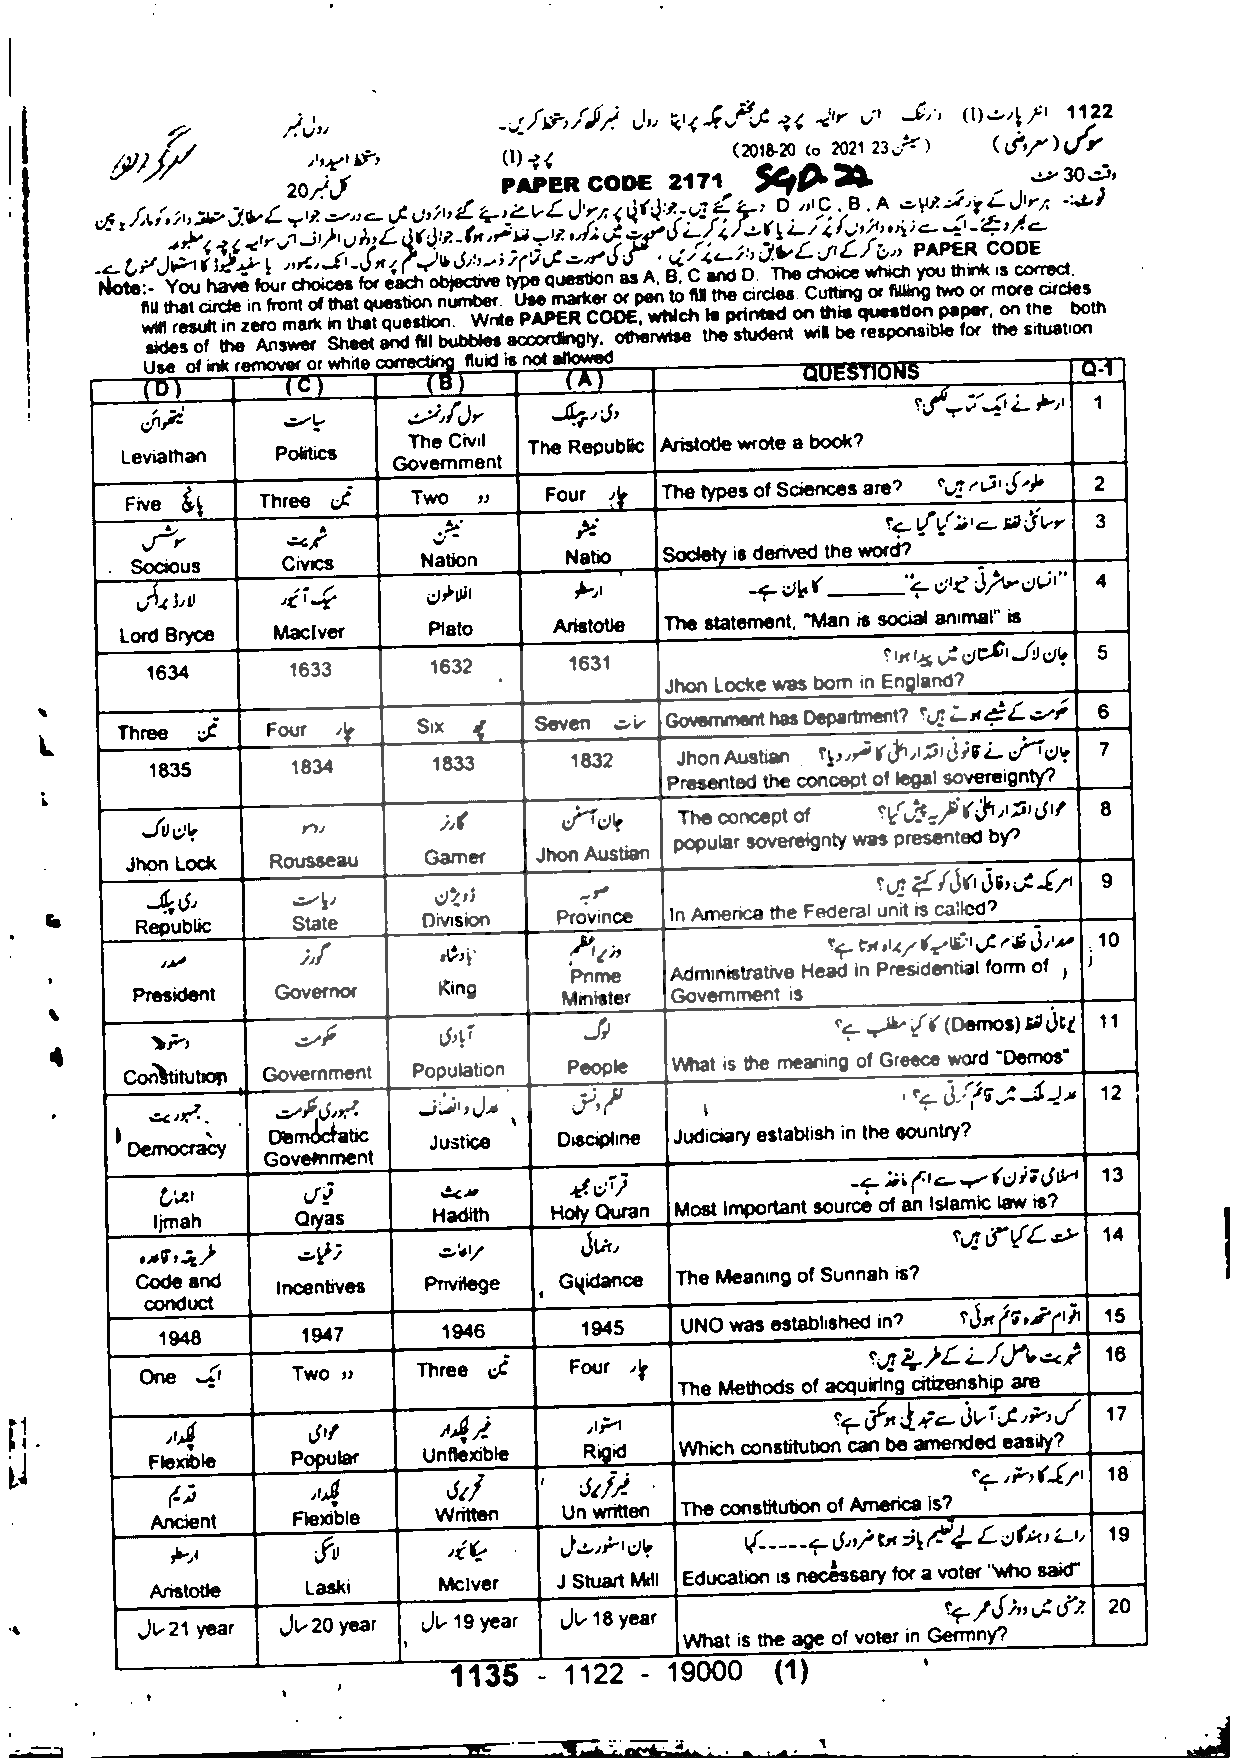 1122 انٹر پارٹ (I) وارننگ اس سوالیہ پرچہ میں مختص جگہ پر اپنا رول نمبر لکھ کر دستخط کریں۔ رول نمبر
سوکس (معروضی) (سیشن 23 2021 to 2018-20) پرچہ (I) دستخط امیدوار
وقت 30 منٹ SGD 22 PAPER CODE 2171 کل نمبر 20
نوٹ:- ہر سوال کے چار ممکنہ جوابات A ، B ، C اور D دیئے گئے ہیں۔ جوابی کاپی پر ہر سوال کے سامنے دیئے گئے دائروں میں سے درست جواب کے مطابق متعلقہ دائرہ کو مارکر یا پین
سے بھر دیجئے۔ ایک سے زیادہ دائروں کو پُر کرنے یا کاٹ کر پُر کرنے کی صورت میں مذکورہ جواب غلط تصور ہوگا۔ جوابی کاپی کے دونوں اطراف اس سوالیہ پرچہ پر مطبوعہ
PAPER CODE درج کر کے اس کے مطابق دائرے پُر کریں، غلطی کی صورت میں تمام تر ذمہ داری طالب علم پر ہوگی۔ انک ریموور یا سفید فلیوڈ کا استعمال ممنوع ہے۔
Note:- You have four choices for each objective type question as A, B, C and D. The choice which you think is correct,
fill that circle in front of that question number. Use marker or pen to fill the circles. Cutting or filling two or more circles
will result in zero mark in that question. Write PAPER CODE, which is printed on this question paper, on the both
sides of the Answer Sheet and fill bubbles accordingly, otherwise the student will be responsible for the situation
Use of ink remover or white correcting fluid is not allowed
(D) (C) (B) (A) QUESTIONS Q-1
لیویتھان سیاست سول گورنمنٹ دی ری پبلک ارسطو نے ایک کتاب لکھی؟ 1
Leviathan Politics The Civil Government The Republic Aristotle wrote a book?
Five پانچ Three تین Two دو Four چار The types of Sciences are? علوم کی اقسام ہیں؟ 2
سوشس شہریت نیشن نیٹو سوسائٹی لفظ سے اخذ کیا گیا ہے؟ 3
Socious Civics Nation Natio Society is derived the word?
لارڈ برائس میک آئیور افلاطون ارسطو "انسان معاشرتی حیوان ہے" ______ کا بیان ہے۔ 4
Lord Bryce MacIver Plato Aristotle The statement, "Man is social animal" is
1634 1633 1632 1631 جان لاک انگلستان میں پیدا ہوا؟ 5
Jhon Locke was born in England?
Three تین Four چار Six چھ Seven سات Government has Department? حکومت کے شعبے ہوتے ہیں؟ 6
1835 1834 1833 1832 Jhon Austian جان آسٹن نے قانونی اقتدار اعلیٰ کا تصور دیا؟ 7
Presented the concept of legal sovereignty?
جان لاک روسو گارنر جان آسٹن The concept of عوامی اقتدار اعلیٰ کا نظریہ پیش کیا؟ 8
Jhon Lock Rousseau Garner Jhon Austian popular sovereignty was presented by?
ری پبلک ریاست ڈویژن صوبہ امریکہ میں وفاقی اکائی کو کہتے ہیں؟ 9
Republic State Division Province In America the Federal unit is called?
صدر گورنر بادشاہ وزیراعظم صدارتی نظام میں انتظامیہ کا سربراہ ہوتا ہے؟ 10
President Governor King Prime Minister Administrative Head in Presidential form of Government is
دستور حکومت آبادی لوگ یونانی لفظ (Demos) کا کیا مطلب ہے؟ 11
Constitution Government Population People What is the meaning of Greece word "Demos"
جمہوریت جمہوری حکومت عدل و انصاف نظم و نسق عدلیہ ملک میں قائم کرتی ہے؟ 12
Democracy Democratic Government Justice Discipline Judiciary establish in the country?
اجماع قیاس حدیث قرآن مجید اسلامی قانون کا سب سے اہم ماخذ ہے۔ 13
Ijmah Qiyas Hadith Holy Quran Most Important source of an Islamic law is?
طریقہ و قاعدہ ترغیبات مراعات رہنمائی سنت کے کیا معنی ہیں؟ 14
Code and conduct Incentives Privilege Guidance The Meaning of Sunnah is?
1948 1947 1946 1945 UNO was established in? اقوام متحدہ قائم ہوئی؟ 15
One ایک Two دو Three تین Four چار شہریت حاصل کرنے کے طریقے ہیں؟ 16
The Methods of acquiring citizenship are
لچکدار عوامی غیر لچکدار استوار کس دستور میں آسانی سے تبدیلی ہو سکتی ہے؟ 17
Flexible Popular Unflexible Rigid Which constitution can be amended easily?
قدیم لچکدار تحریری غیر تحریری امریکہ کا دستور ہے؟ 18
Ancient Flexible Written Un written The constitution of America is?
ارسطو لاسکی میکائیور جان اسٹورٹ مل رائے دہندگان کے لیے تعلیم یافتہ ہونا ضروری ہے-----کہا 19
Aristotle Laski McIver J Stuart Mill Education is necessary for a voter "who said"
21 year سال 20 year سال 19 year سال 18 year سال جرمنی میں ووٹر کی عمر ہے؟ 20
What is the age of voter in Germny?
1135 - 1122 - 19000 (1)